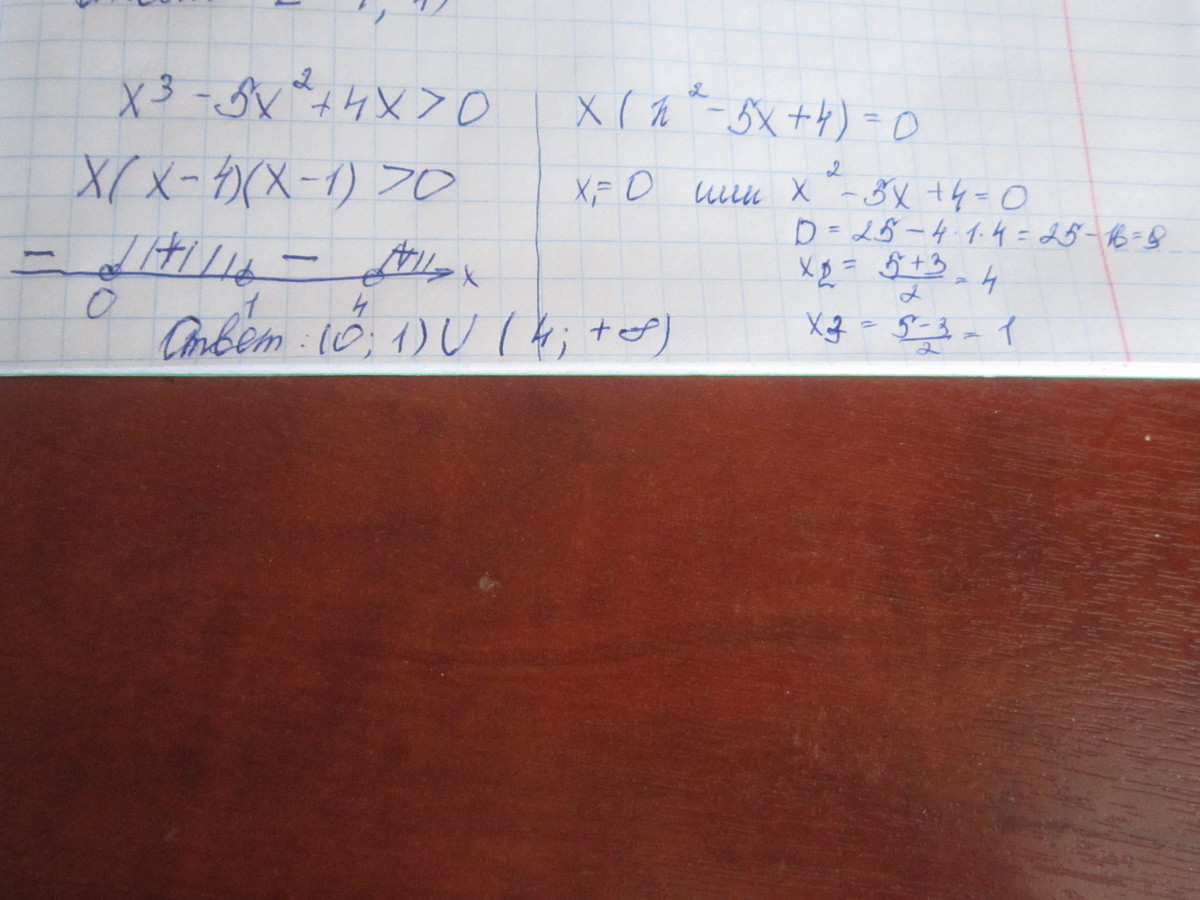 x³ - 5x² + 4x > 0
x(x-4)(x-1) > 0
- + - +
0 1 4 x
Ответ: (0; 1) ∪ (4; +∞)
x(x² - 5x + 4) = 0
x₁ = 0 или x² - 5x + 4 = 0
D = 25 - 4·1·4 = 25 - 16 = 9
x₂ = (5+3)/2 = 4
x₃ = (5-3)/2 = 1